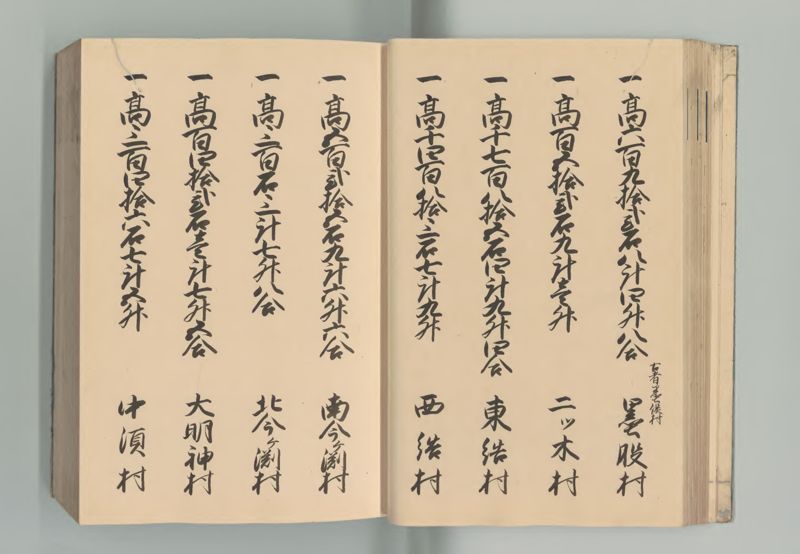 一高六百九拾弐石八斗四升八合
古者墨俣村
墨股村
一高百五拾弐石九斗壱升
二ッ木村
一高千七百八拾五石四斗九升四合
東結村
一高千四百八拾三石七斗九升
西結村
一高五百弐拾五石九斗六升六合
南今ヶ渕村
一高三百石三斗七升八合
北今ヶ渕村
一高百四拾弐石壱斗七升五合
大明神村
一高三百四拾六石七斗五升
中須村